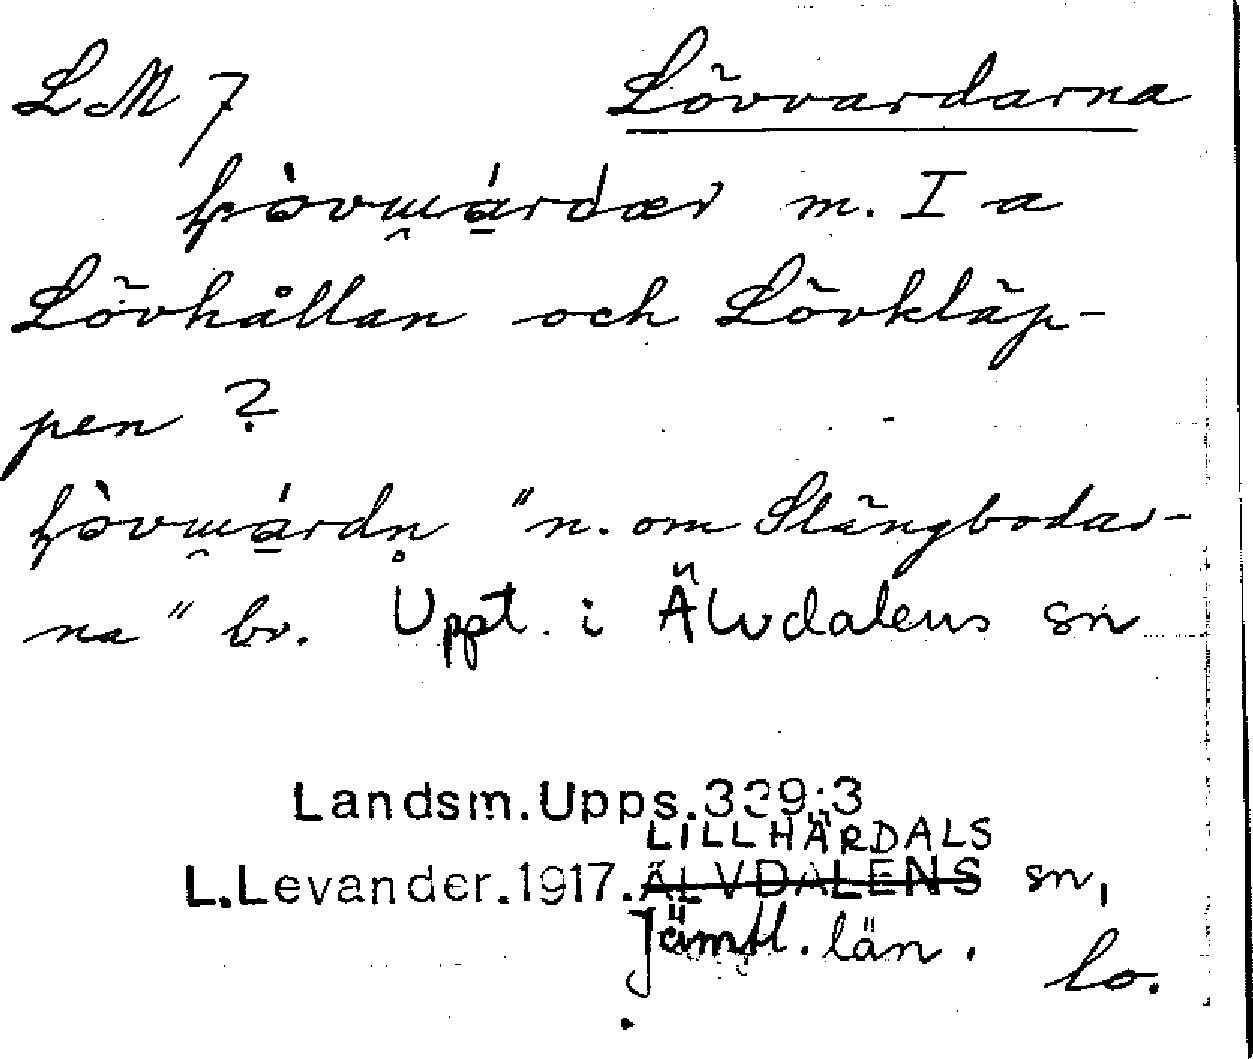 LM 7 Lövvardarna
m. I a
Lövhållan och Lövkläp-
pen ?
"n. om Stängbodar-
na" bv. Uppt. i Älvdalens sn
Landsm.Upps.339:3
LILLHÄRDALS
L.Levander.1917.ÄLVDALENS sn,
Jämtl. län.
lo.